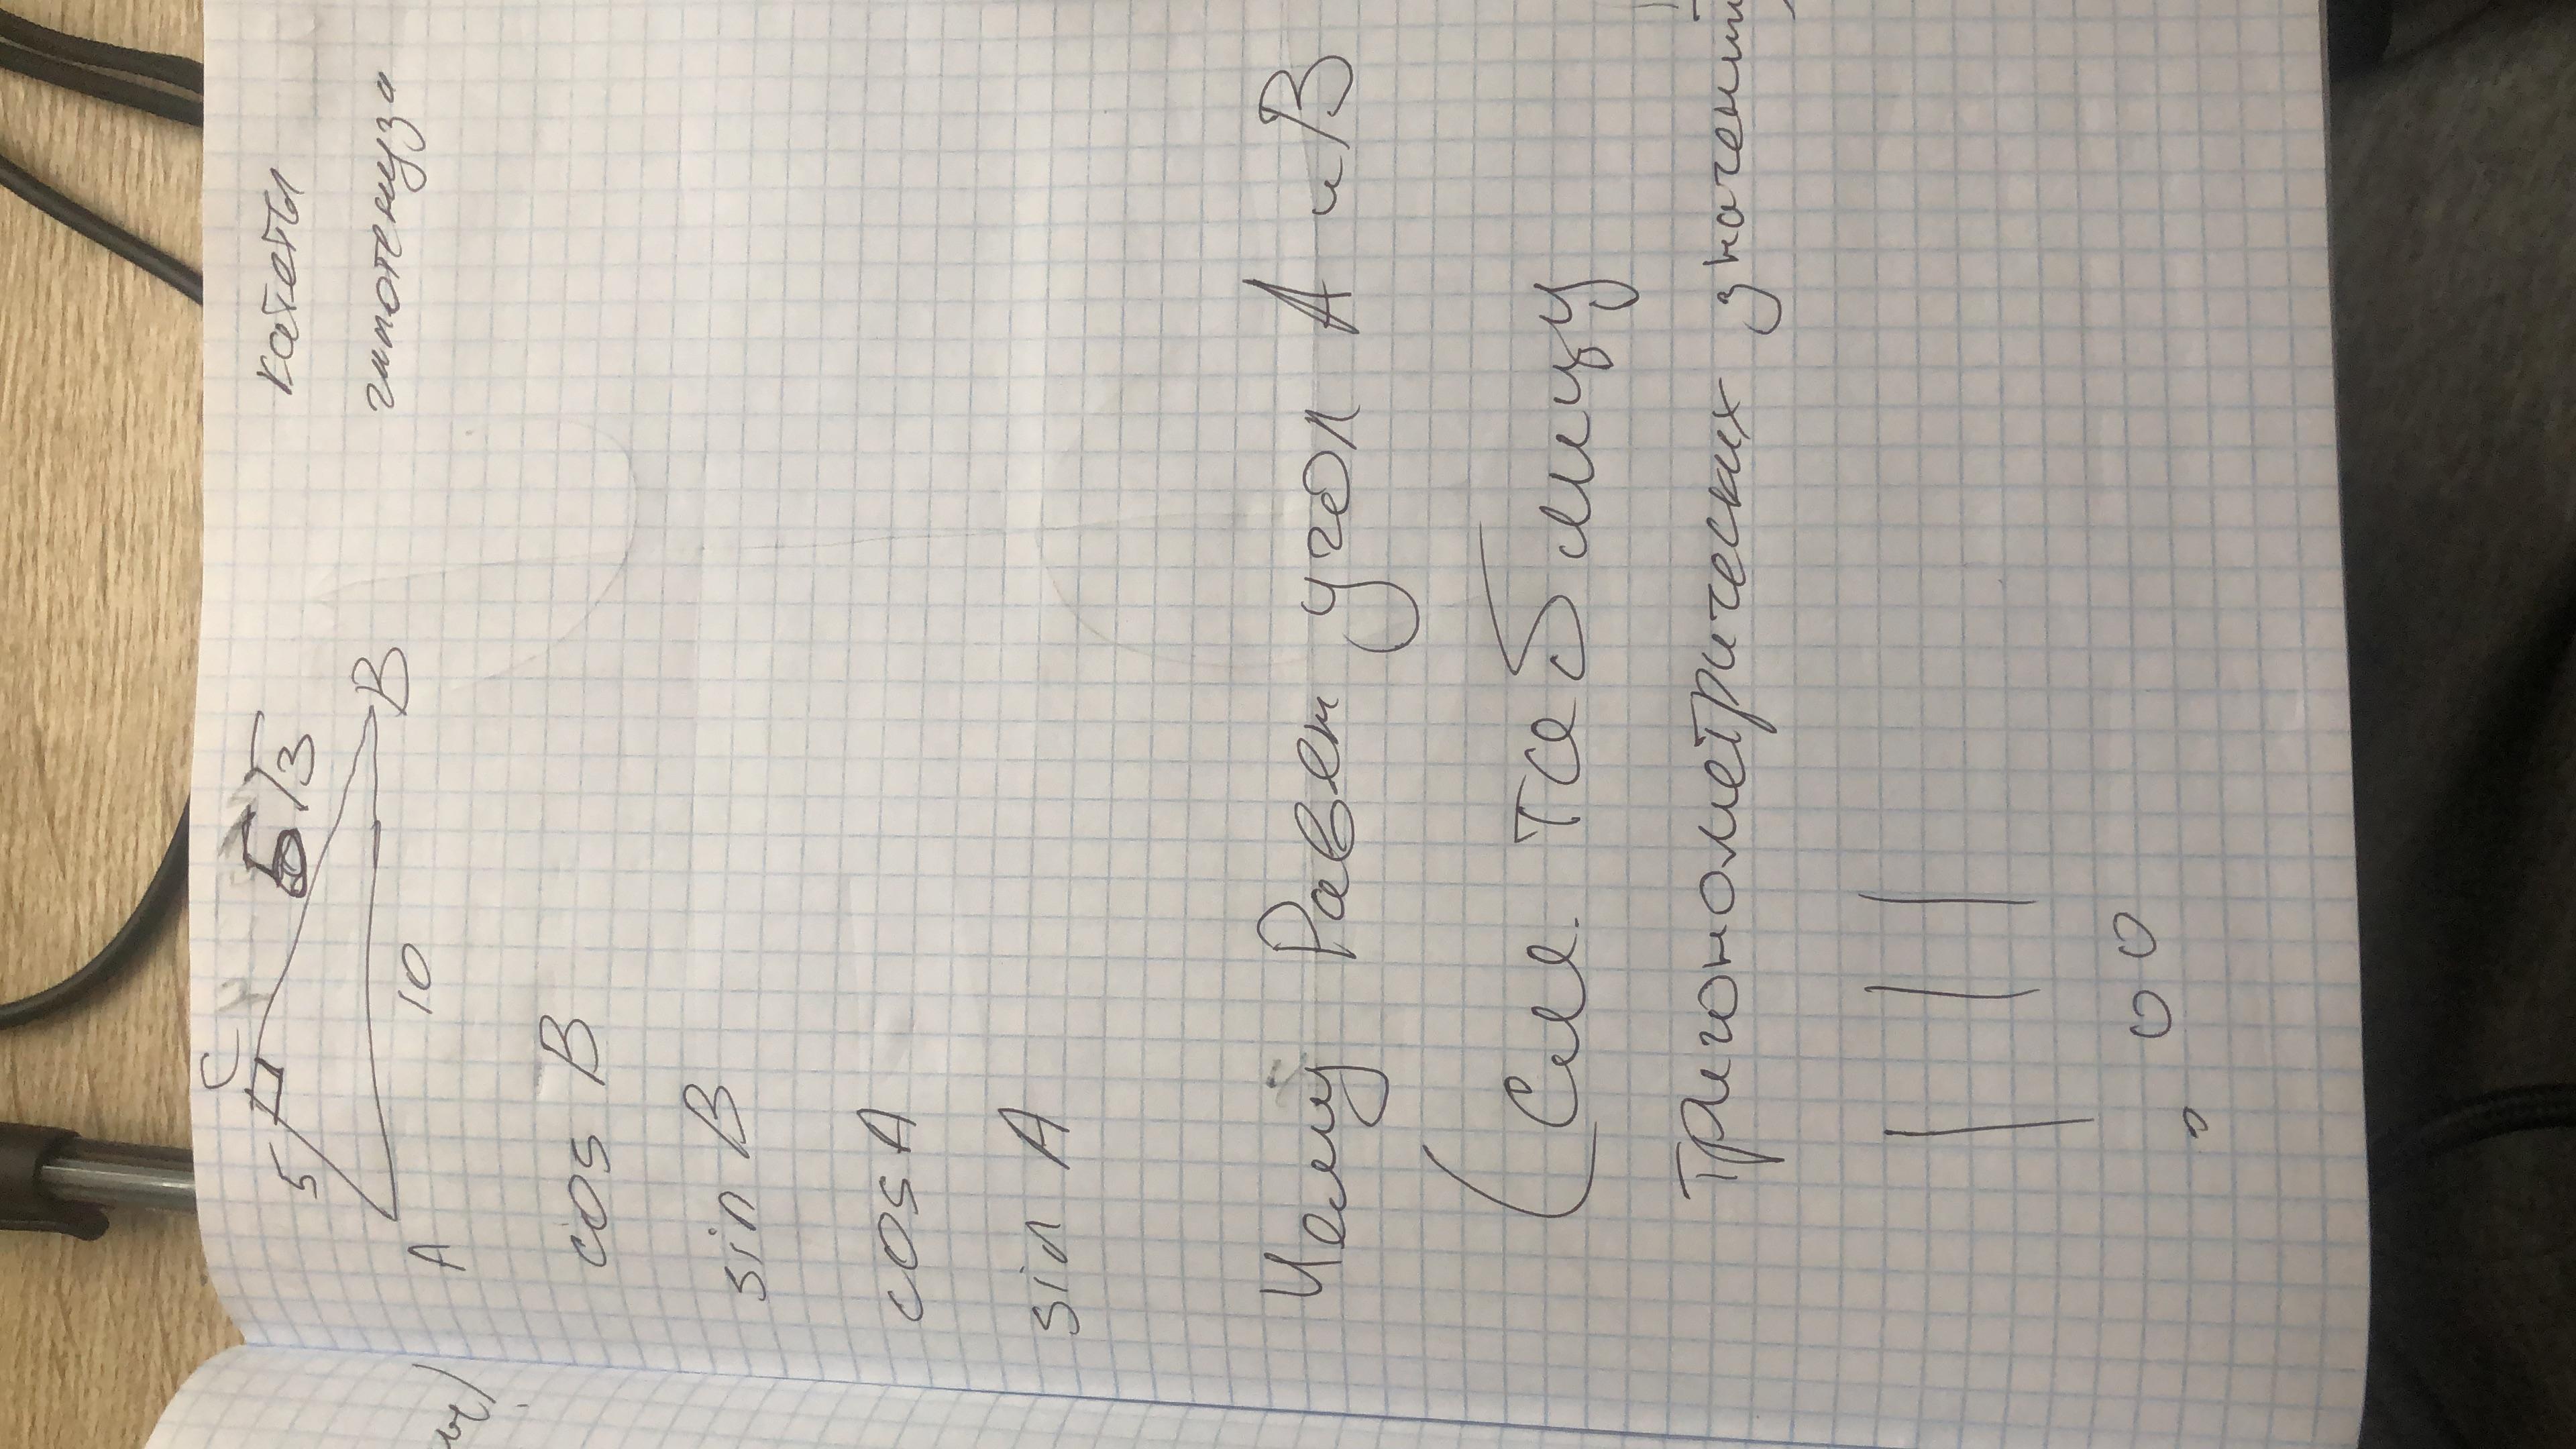 C
5
5√3
A
10
B
катеты
гипотенуза
cos B
sin B
cos A
sin A
Чему Равен угол A и B
(См. Таблицу
Тригонометрических значений